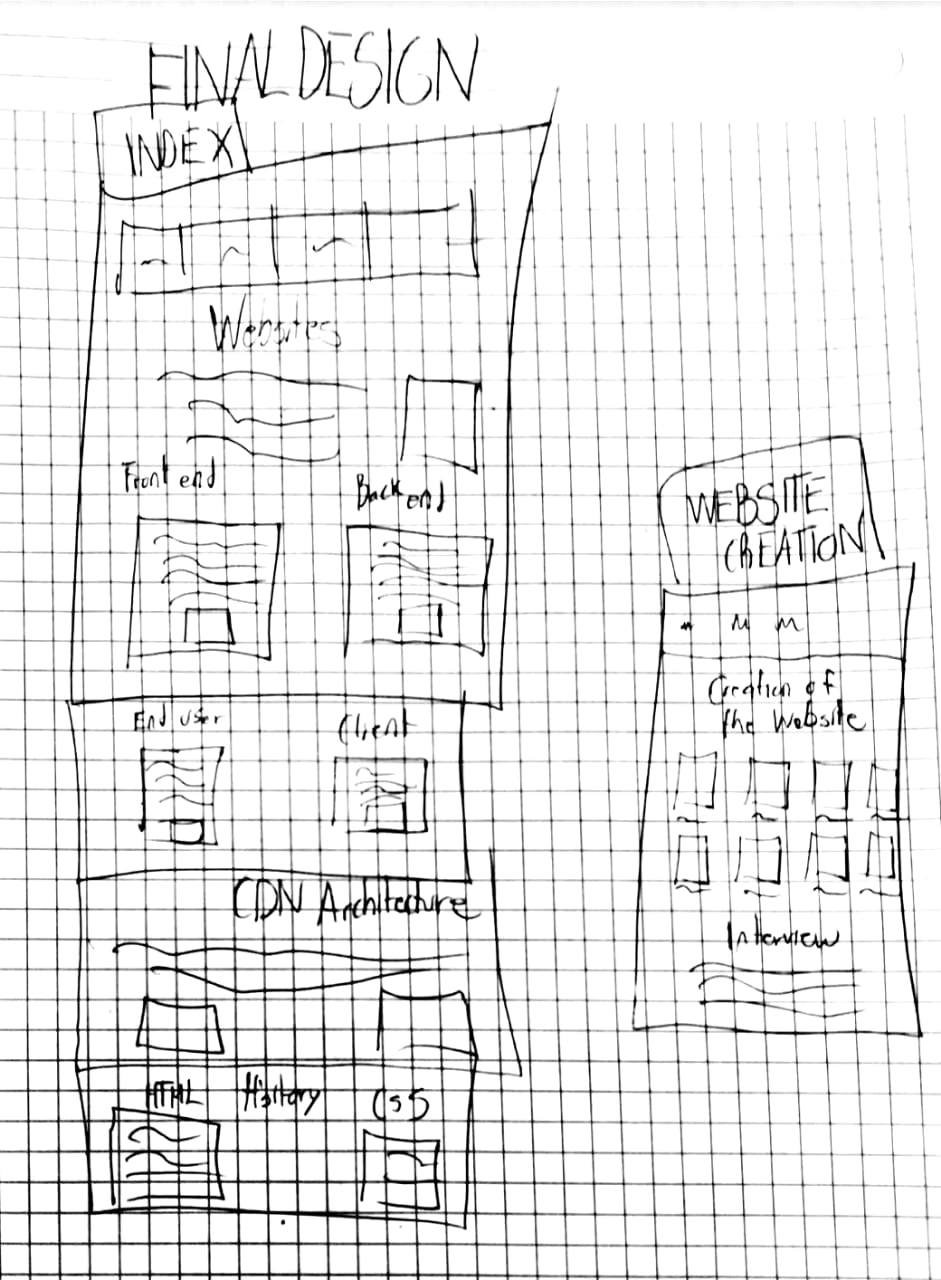 FINAL DESIGN
INDEX
Websites
Front end
Back end
End user
Client
CDN Architecture
HTML History CSS
WEBSITE
CREATION
Creation of
the Website
Interview